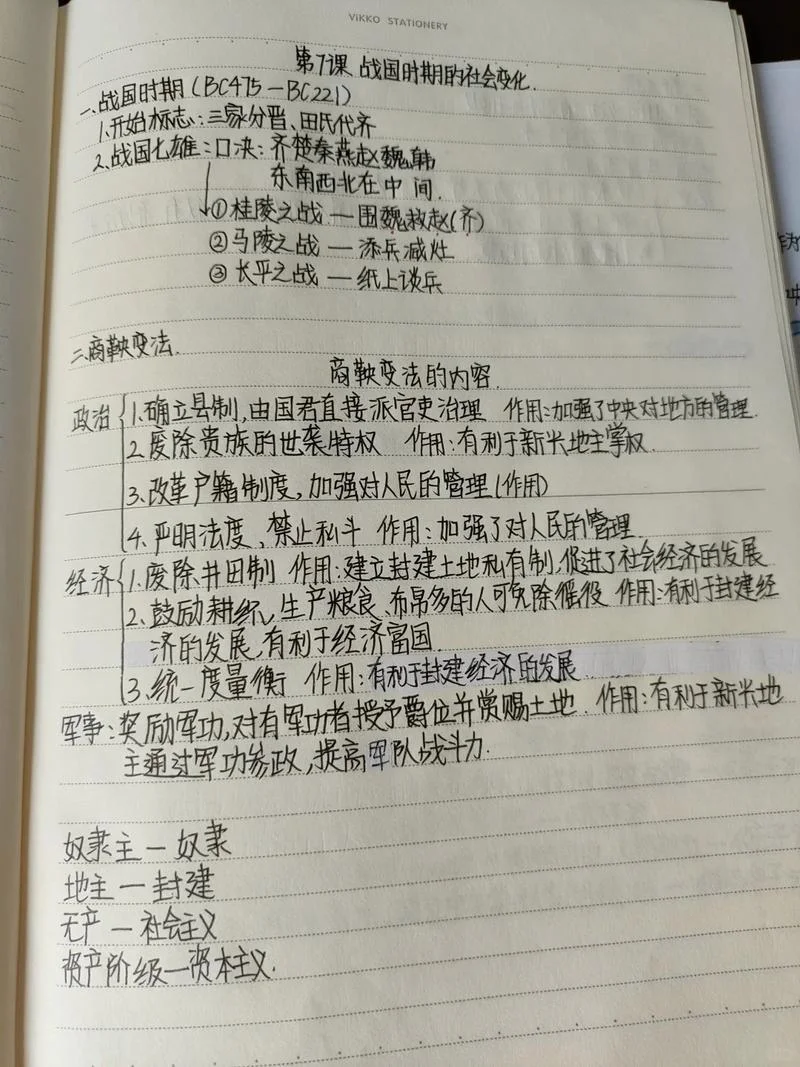 VIKKO STATIONERY
第7课 战国时期的社会变化.
一、战国时期(BC475—BC221)
1.开始标志:三家分晋、田氏代齐
2.战国七雄:口决:齐楚秦燕赵魏韩
东南西北在中间.
①桂陵之战—围魏救赵(齐)
②马陵之战—添兵减灶
③长平之战—纸上谈兵
二.商鞅变法.
商鞅变法的内容.
政治 1.确立县制,由国君直接派官吏治理 作用:加强了中央对地方的管理.
2.废除贵族的世袭特权 作用:有利于新兴地主掌权.
3.改革户籍制度,加强对人民的管理(作用)
4.严明法度、禁止私斗 作用:加强了对人民的管理.
经济 1.废除井田制 作用:建立封建土地私有制,促进了社会经济的发展
2.鼓励耕织,生产粮食、布帛多的人可免除徭役 作用:有利于封建经
济的发展,有利于经济富国.
3.统一度量衡 作用:有利于封建经济的发展
军事:奖励军功,对有军功者授予爵位并赏赐土地. 作用:有利于新兴地
主通过军功参政,提高军队战斗力.
奴隶主—奴隶
地主—封建
无产—社会主义
资产阶级—资本主义.